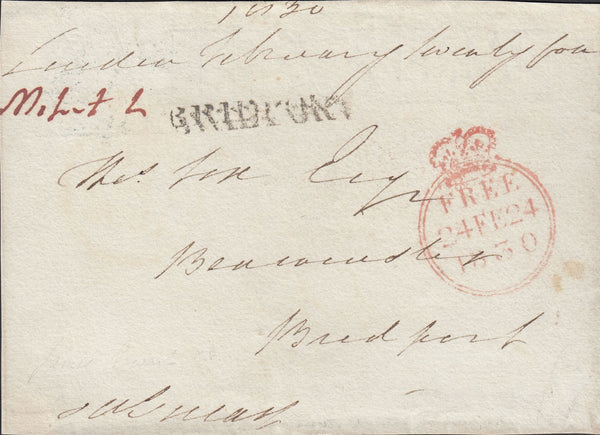 1830
London February twenty four
BRIDPORT
Thos Fox Esqr
FREE
24FE24
1830
Beaminster
Bridport